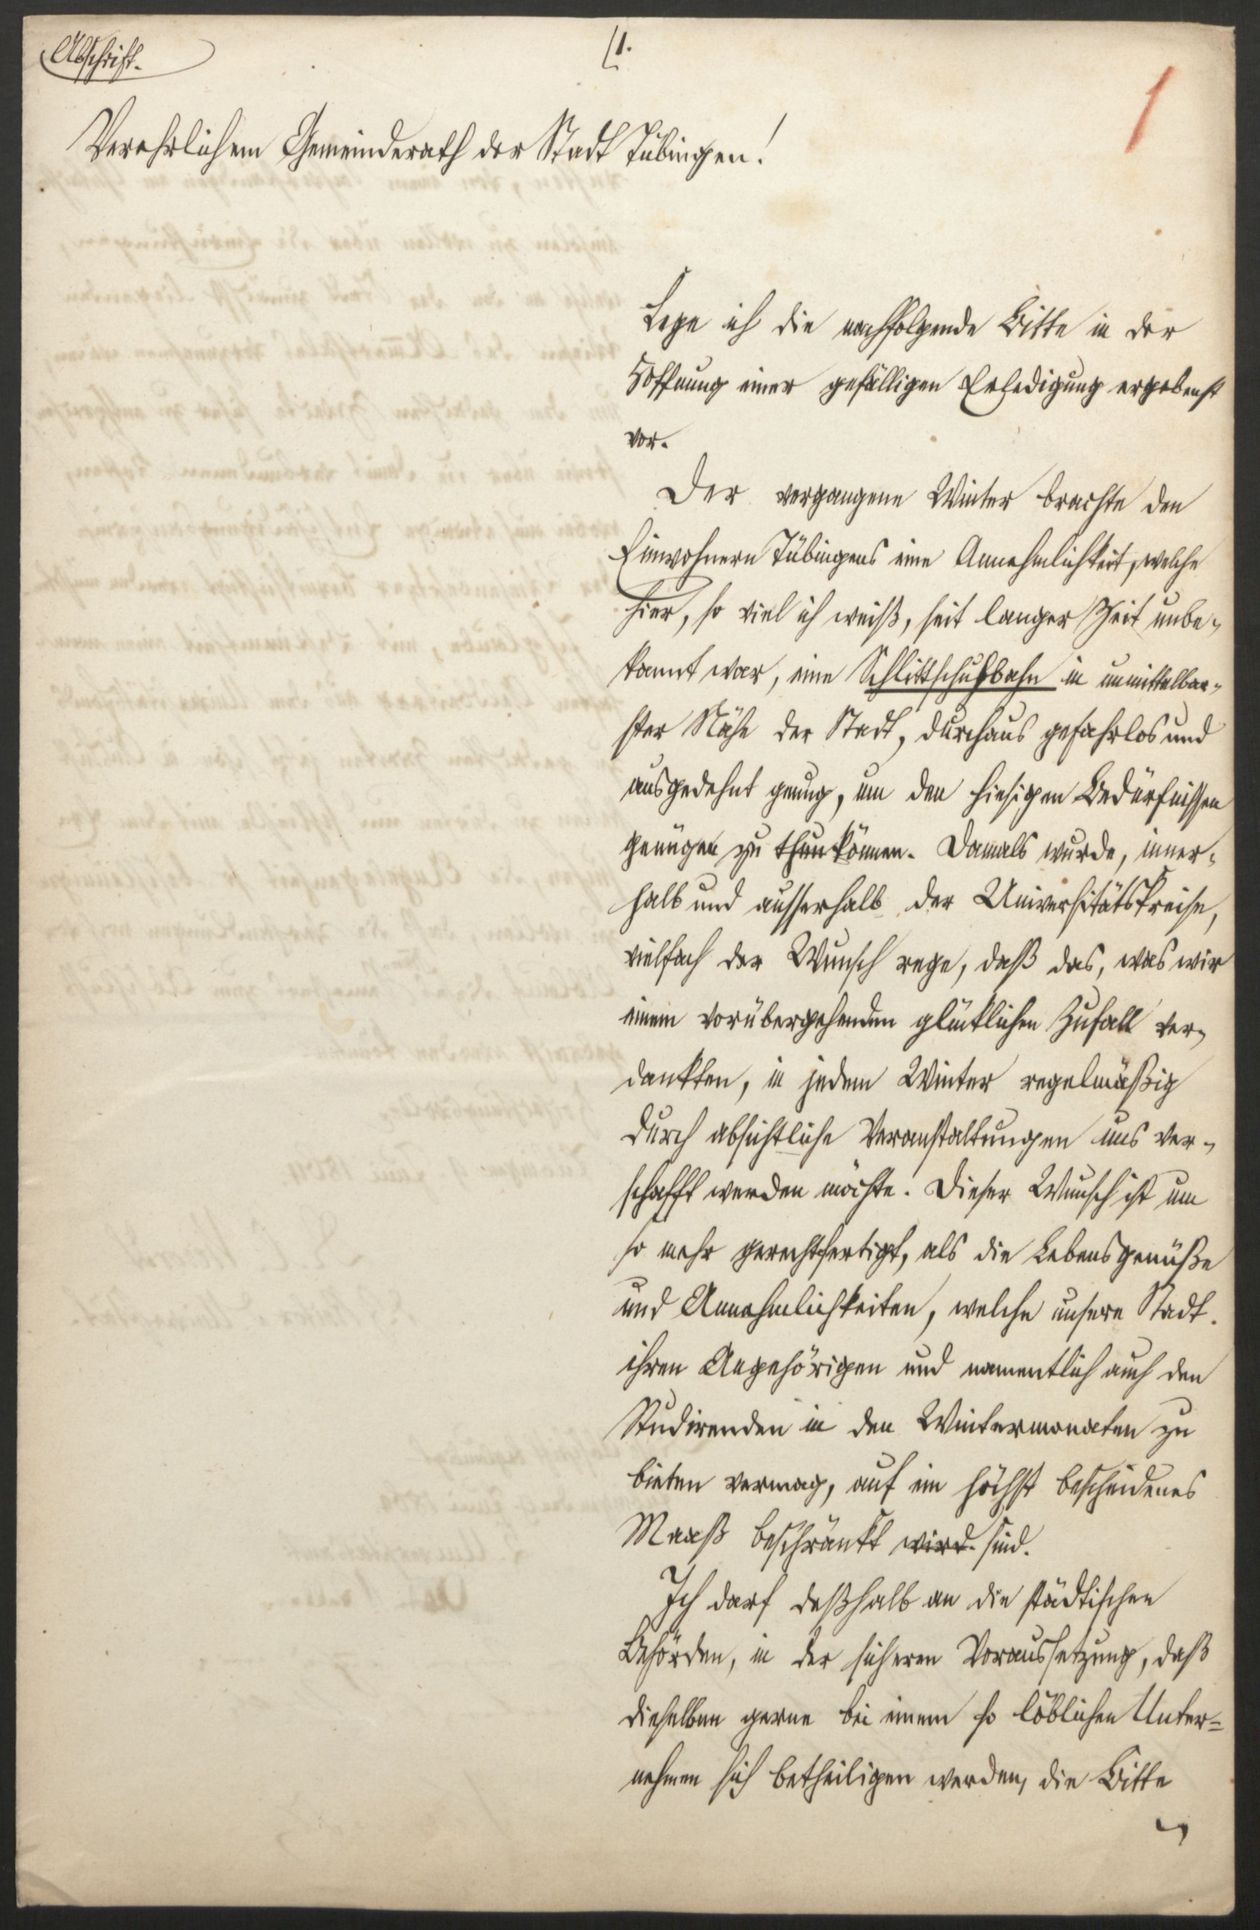 Abschrift.
1.
1
Verehrlichem Gemeinderath der Stadt Tübingen!
Lege ich die nachfolgende Bitte in der
Hoffnung einer gefälligen Erledigung ergebenst
vor.
Der vergangene Winter brachte den
Einwohnern Tübingens eine Annehmlichkeit, welche
hier, so viel ich weiß, seit langer Zeit unbe-
kannt war, eine Schlittschuhbahn in unmittelbar-
ster Nähe der Stadt, durchaus gefahrlos und
ausgedehnt genug, um den hiesigen Bedürfnissen
genügen zu thun können. Damals wurde, inner-
halb und ausserhalb der Universitätskreise,
vielfach der Wunsch rege, daß das, was wir
einem vorübergehenden glücklichen Zufall ver-
dankten, in jedem Winter regelmäßig
durch absichtliche Veranstaltungen uns ver-
schafft werden möchte. Dieser Wunsch ist um
so mehr gerechtfertigt, als die Lebensgenüße
und Annehmlichkeiten, welche unsere Stadt
ihren Angehörigen und namentlich auch den
Studirenden in den Wintermonaten zu
bieten vermag, auf ein höchst bescheidenes
Maaß beschränkt wird. sind.
Ich darf deßhalb an die städtischen
Behörden, in der sicheren Voraussetzung, daß
dieselben gerne bei einem so löblichen Unter-
nehmen sich betheiligen werden, die Bitte